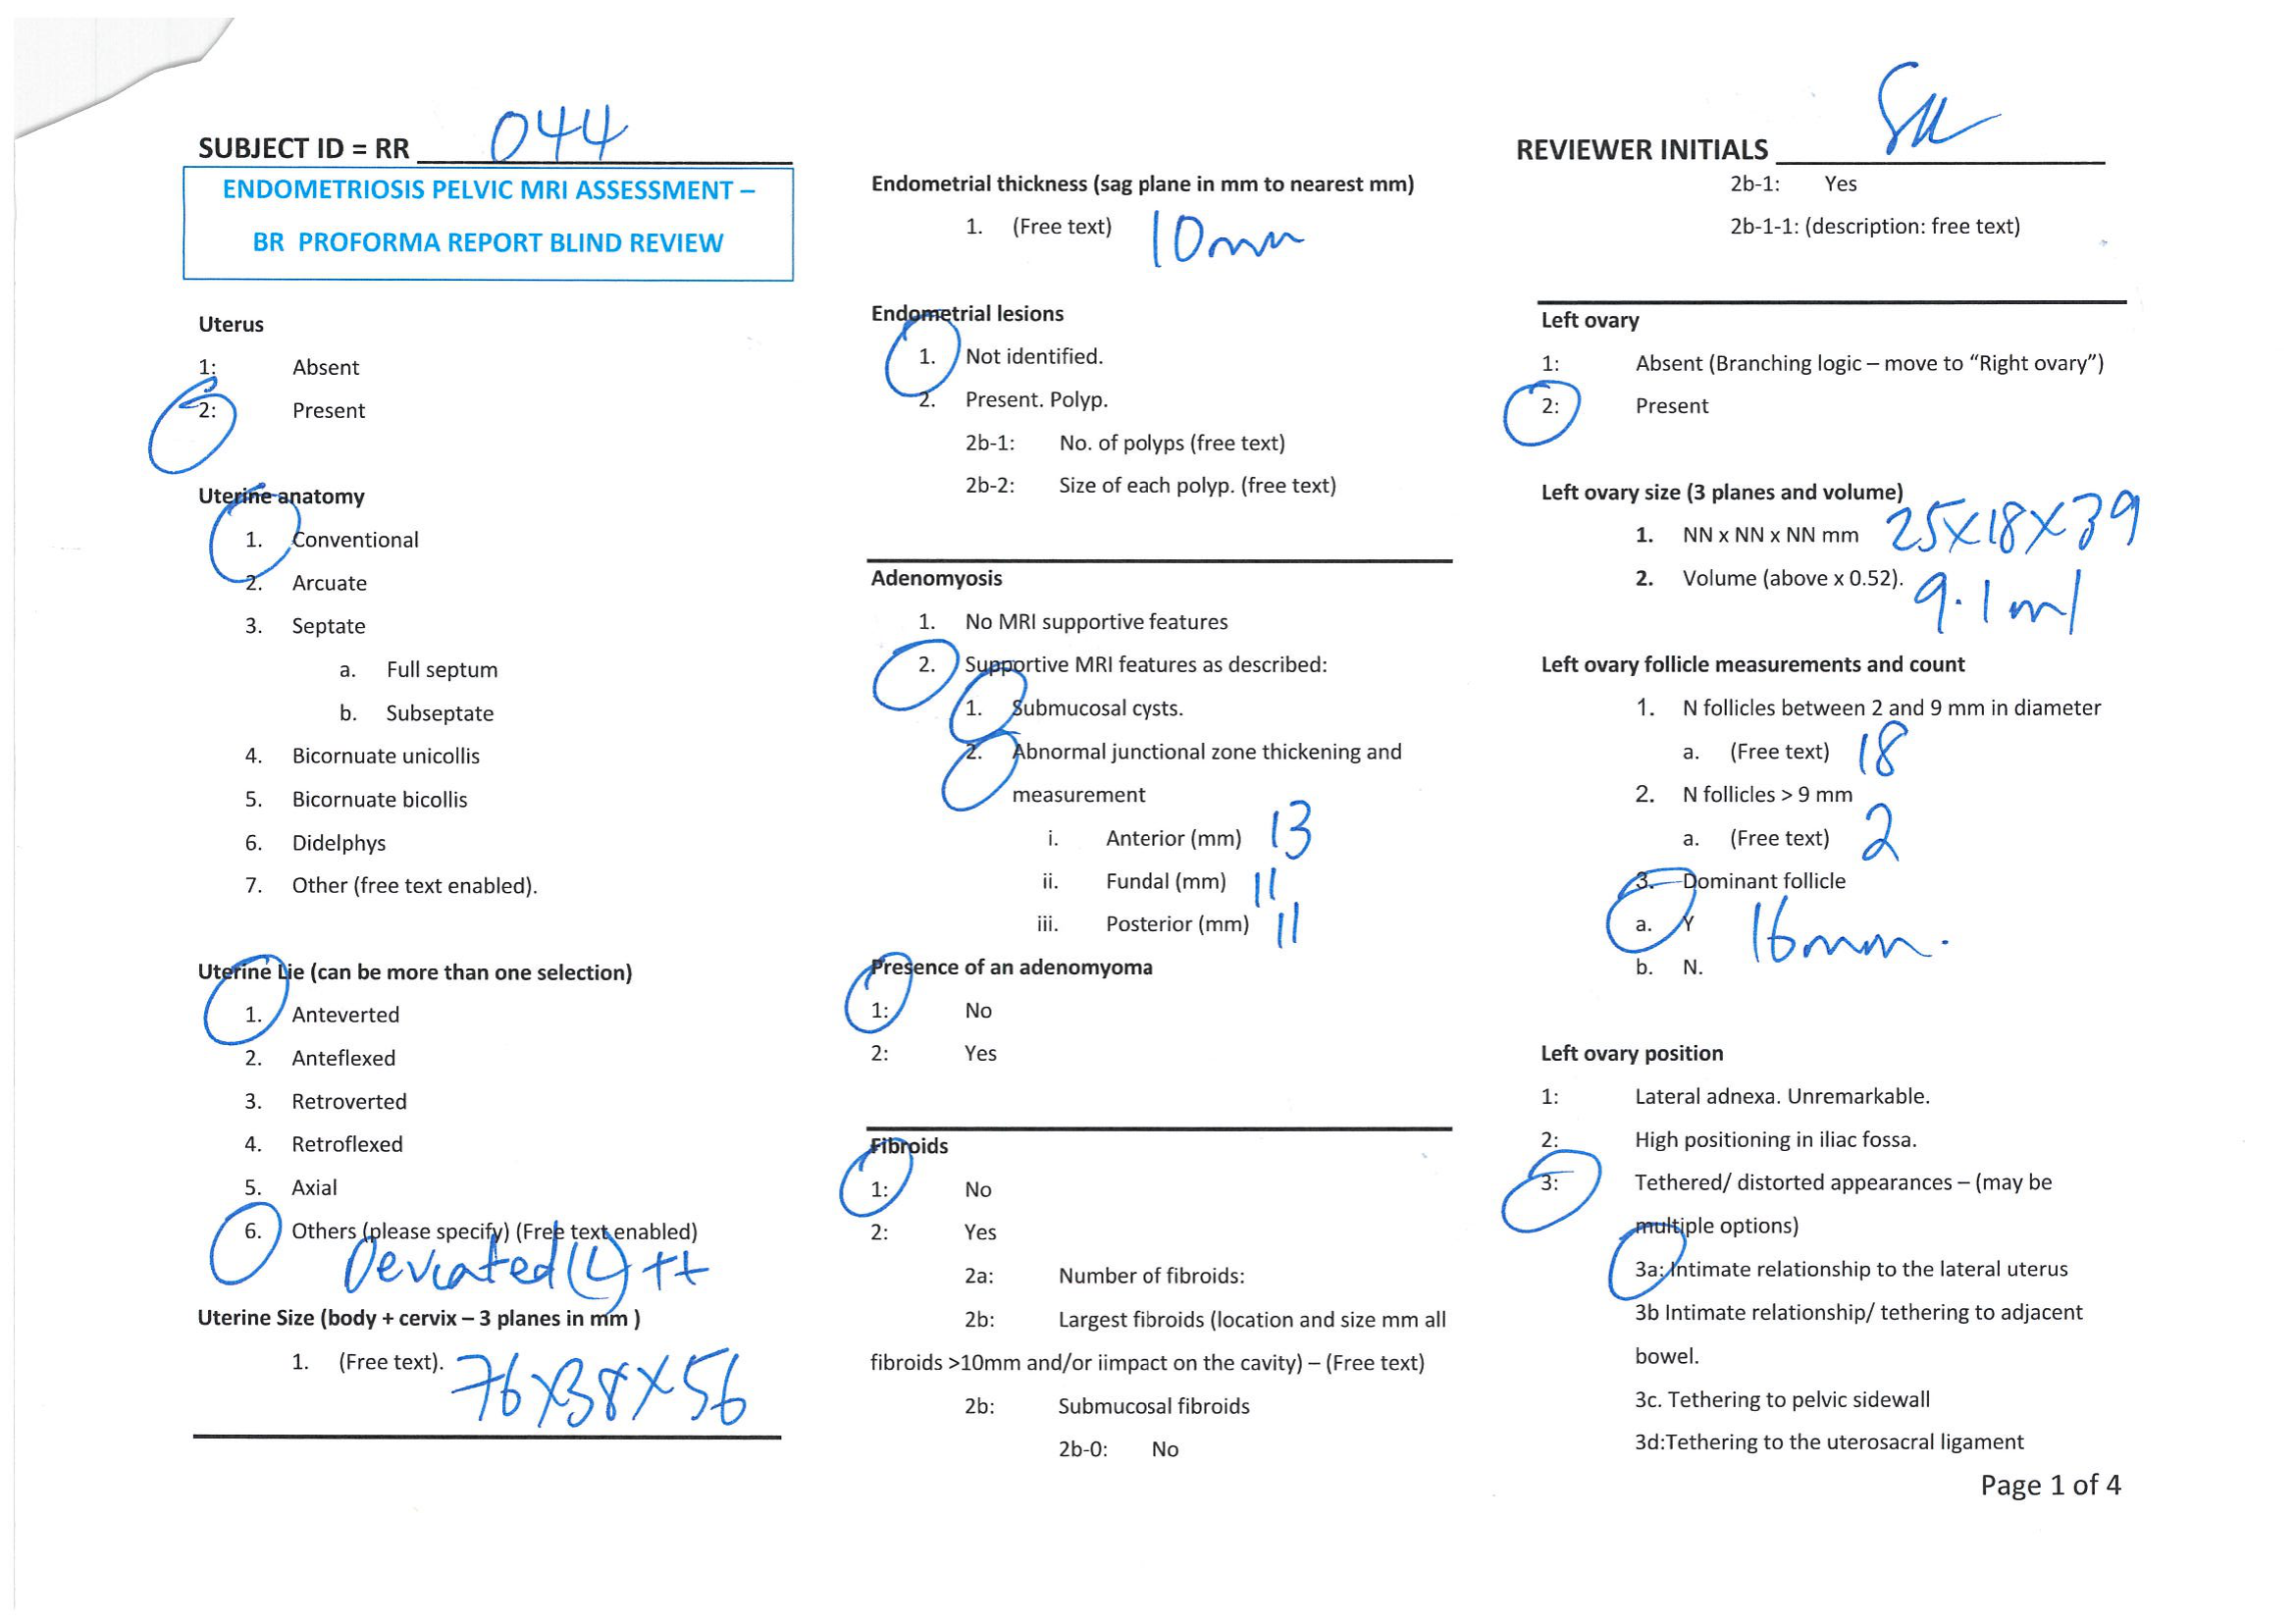 SUBJECT ID = RR 044
ENDOMETRIOSIS PELVIC MRI ASSESSMENT –
BR PROFORMA REPORT BLIND REVIEW
Uterus
1: Absent
2: Present
Uterine anatomy
1. Conventional
2. Arcuate
3. Septate
a. Full septum
b. Subseptate
4. Bicornuate unicollis
5. Bicornuate bicollis
6. Didelphys
7. Other (free text enabled).
Uterine Lie (can be more than one selection)
1. Anteverted
2. Anteflexed
3. Retroverted
4. Retroflexed
5. Axial
6. Others (please specify) (Free text enabled)
Deviated (L) ++
Uterine Size (body + cervix – 3 planes in mm )
1. (Free text). 76x38x56
Endometrial thickness (sag plane in mm to nearest mm)
1. (Free text) 10mm
Endometrial lesions
1. Not identified.
2. Present. Polyp.
2b-1: No. of polyps (free text)
2b-2: Size of each polyp. (free text)
Adenomyosis
1. No MRI supportive features
2. Supportive MRI features as described:
1. Submucosal cysts.
2. Abnormal junctional zone thickening and
measurement
i. Anterior (mm) 13
ii. Fundal (mm) 11
iii. Posterior (mm) 11
Presence of an adenomyoma
1: No
2: Yes
Fibroids
1: No
2: Yes
2a: Number of fibroids:
2b: Largest fibroids (location and size mm all
fibroids >10mm and/or iimpact on the cavity) – (Free text)
2b: Submucosal fibroids
2b-0: No
REVIEWER INITIALS
2b-1: Yes
2b-1-1: (description: free text)
Left ovary
1: Absent (Branching logic – move to “Right ovary”)
2: Present
Left ovary size (3 planes and volume)
1. NN x NN x NN mm 25x18x39
2. Volume (above x 0.52). 9.1ml
Left ovary follicle measurements and count
1. N follicles between 2 and 9 mm in diameter
a. (Free text) 18
2. N follicles > 9 mm
a. (Free text) 2
3. Dominant follicle
a. Y 16mm.
b. N.
Left ovary position
1: Lateral adnexa. Unremarkable.
2: High positioning in iliac fossa.
3: Tethered/ distorted appearances – (may be
multiple options)
3a: Intimate relationship to the lateral uterus
3b Intimate relationship/ tethering to adjacent
bowel.
3c. Tethering to pelvic sidewall
3d:Tethering to the uterosacral ligament
Page 1 of 4